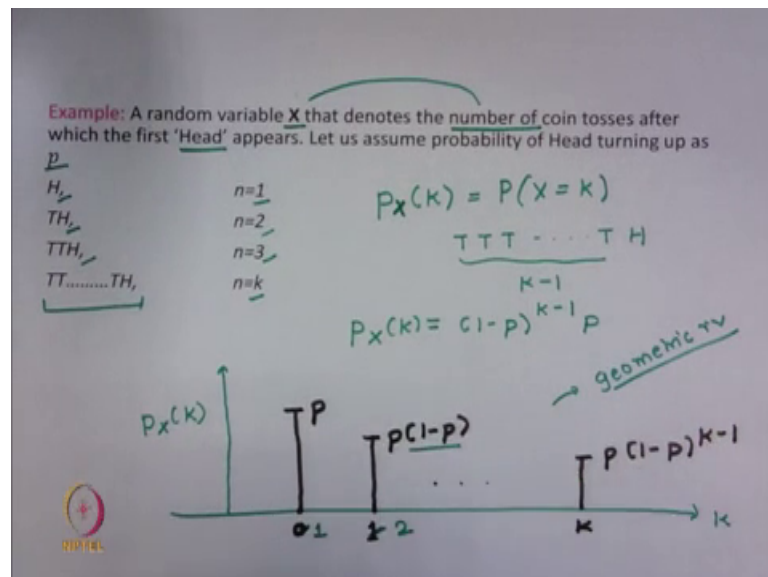 Example: A random variable X that denotes the number of coin tosses after
which the first 'Head' appears. Let us assume probability of Head turning up as
p
H, n=1
TH, n=2
TTH, n=3
TT.........TH, n=k
Px(k) = P(X = k)
T T T - . . . T H
k-1
Px(k) = (1-p)^k-1 p
geometric rv
Px(k)
p
p(1-p)
. . .
p(1-p)^k-1
1 2 k k
NPTEL